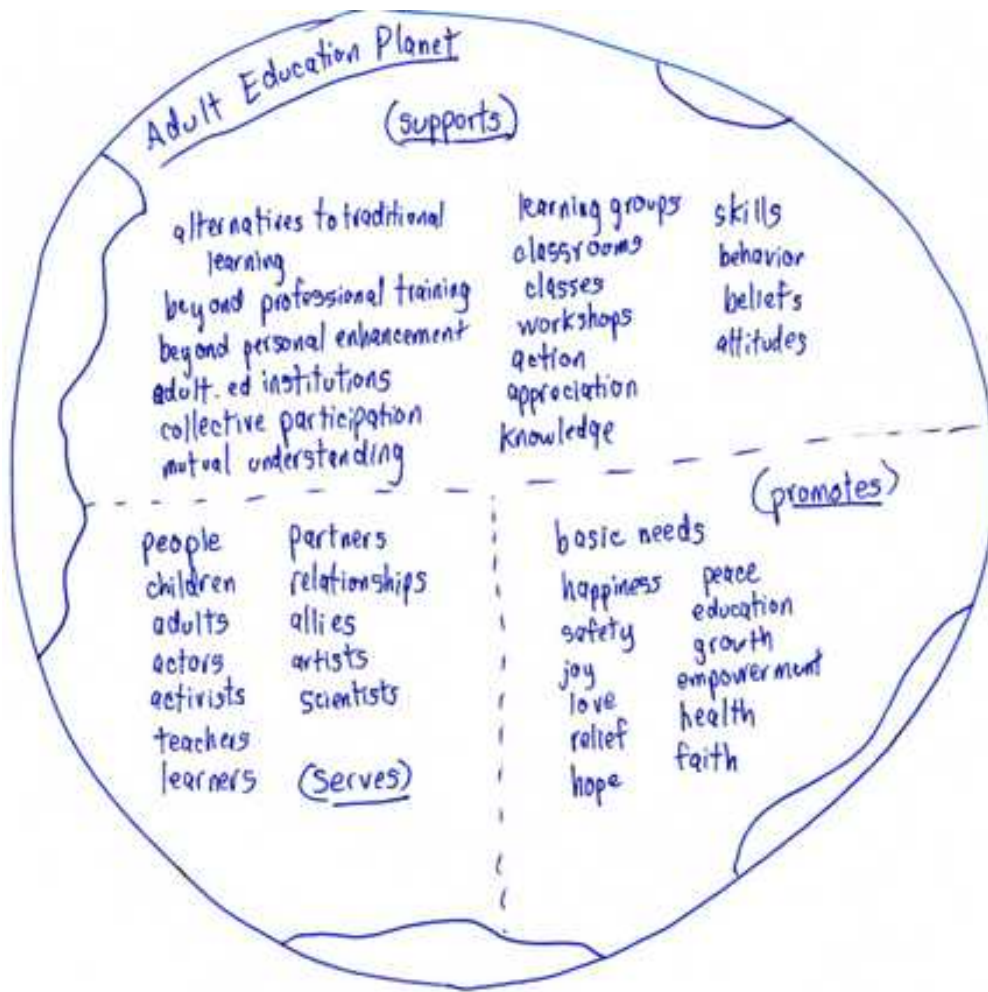 Adult Education Planet
(supports)
alternatives to traditional
learning
beyond professional training
beyond personal enhancement
adult.ed institutions
collective participation
mutual understanding
learning groups
classrooms
classes
workshops
action
appreciation
knowledge
skills
behavior
beliefs
attitudes
people
children
adults
actors
activists
teachers
learners
partners
relationships
allies
artists
scientists
(serves)
(promotes)
basic needs
happiness
safety
joy
love
relief
hope
peace
education
growth
empowerment
health
faith